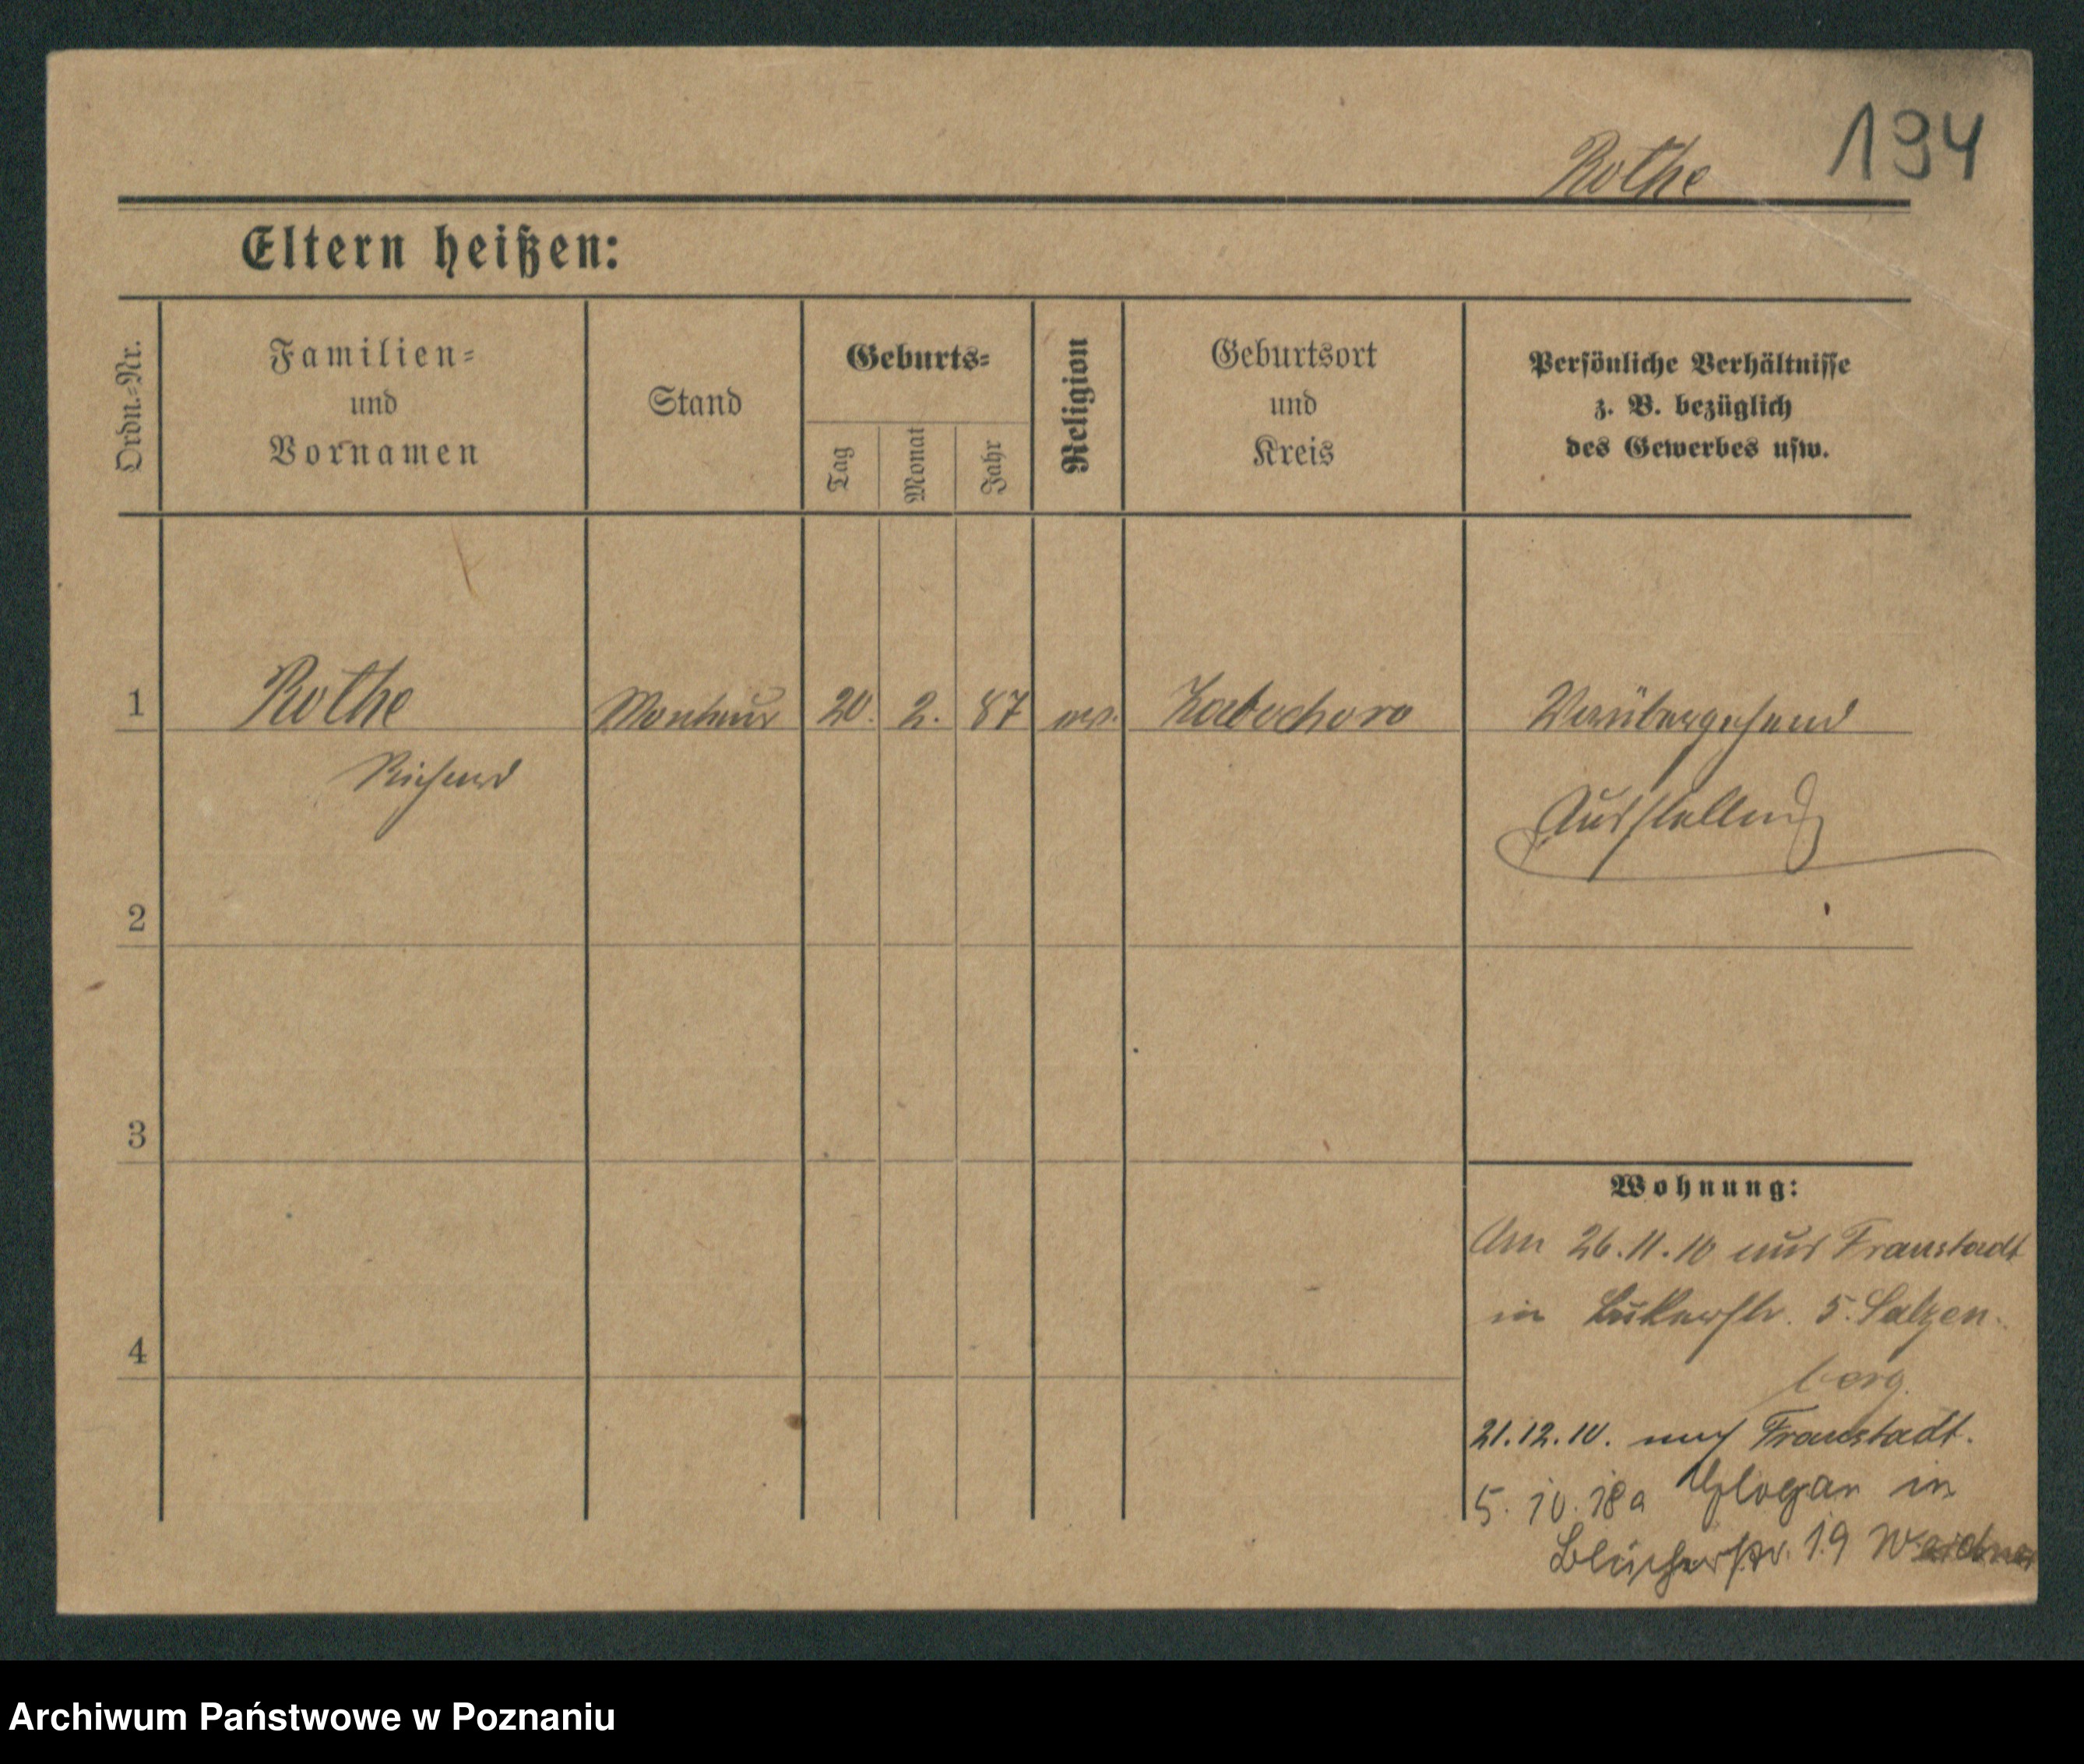 194
Rothe
Eltern heißen:
Ordn.-Nr.
Familien-
und
Vornamen
Stand
Geburts-
Tag
Monat
Jahr
Religion
Geburtsort
und
Kreis
Persönliche Verhältnisse
z. B. bezüglich
des Gewerbes usw.
1 Rothe Monteur 20. 2. 87 Zaborowo Vorübergehend
Richard
Ausstellung
2
3
4
Wohnung:
Am 26.11.10 aus Fraustadt
in 5. Salzen-
berg.
21.12.10. nach Fraustadt.
5. 10. 18 a Glogau in
Blücherstr. 19
Archiwum Państwowe w Poznaniu